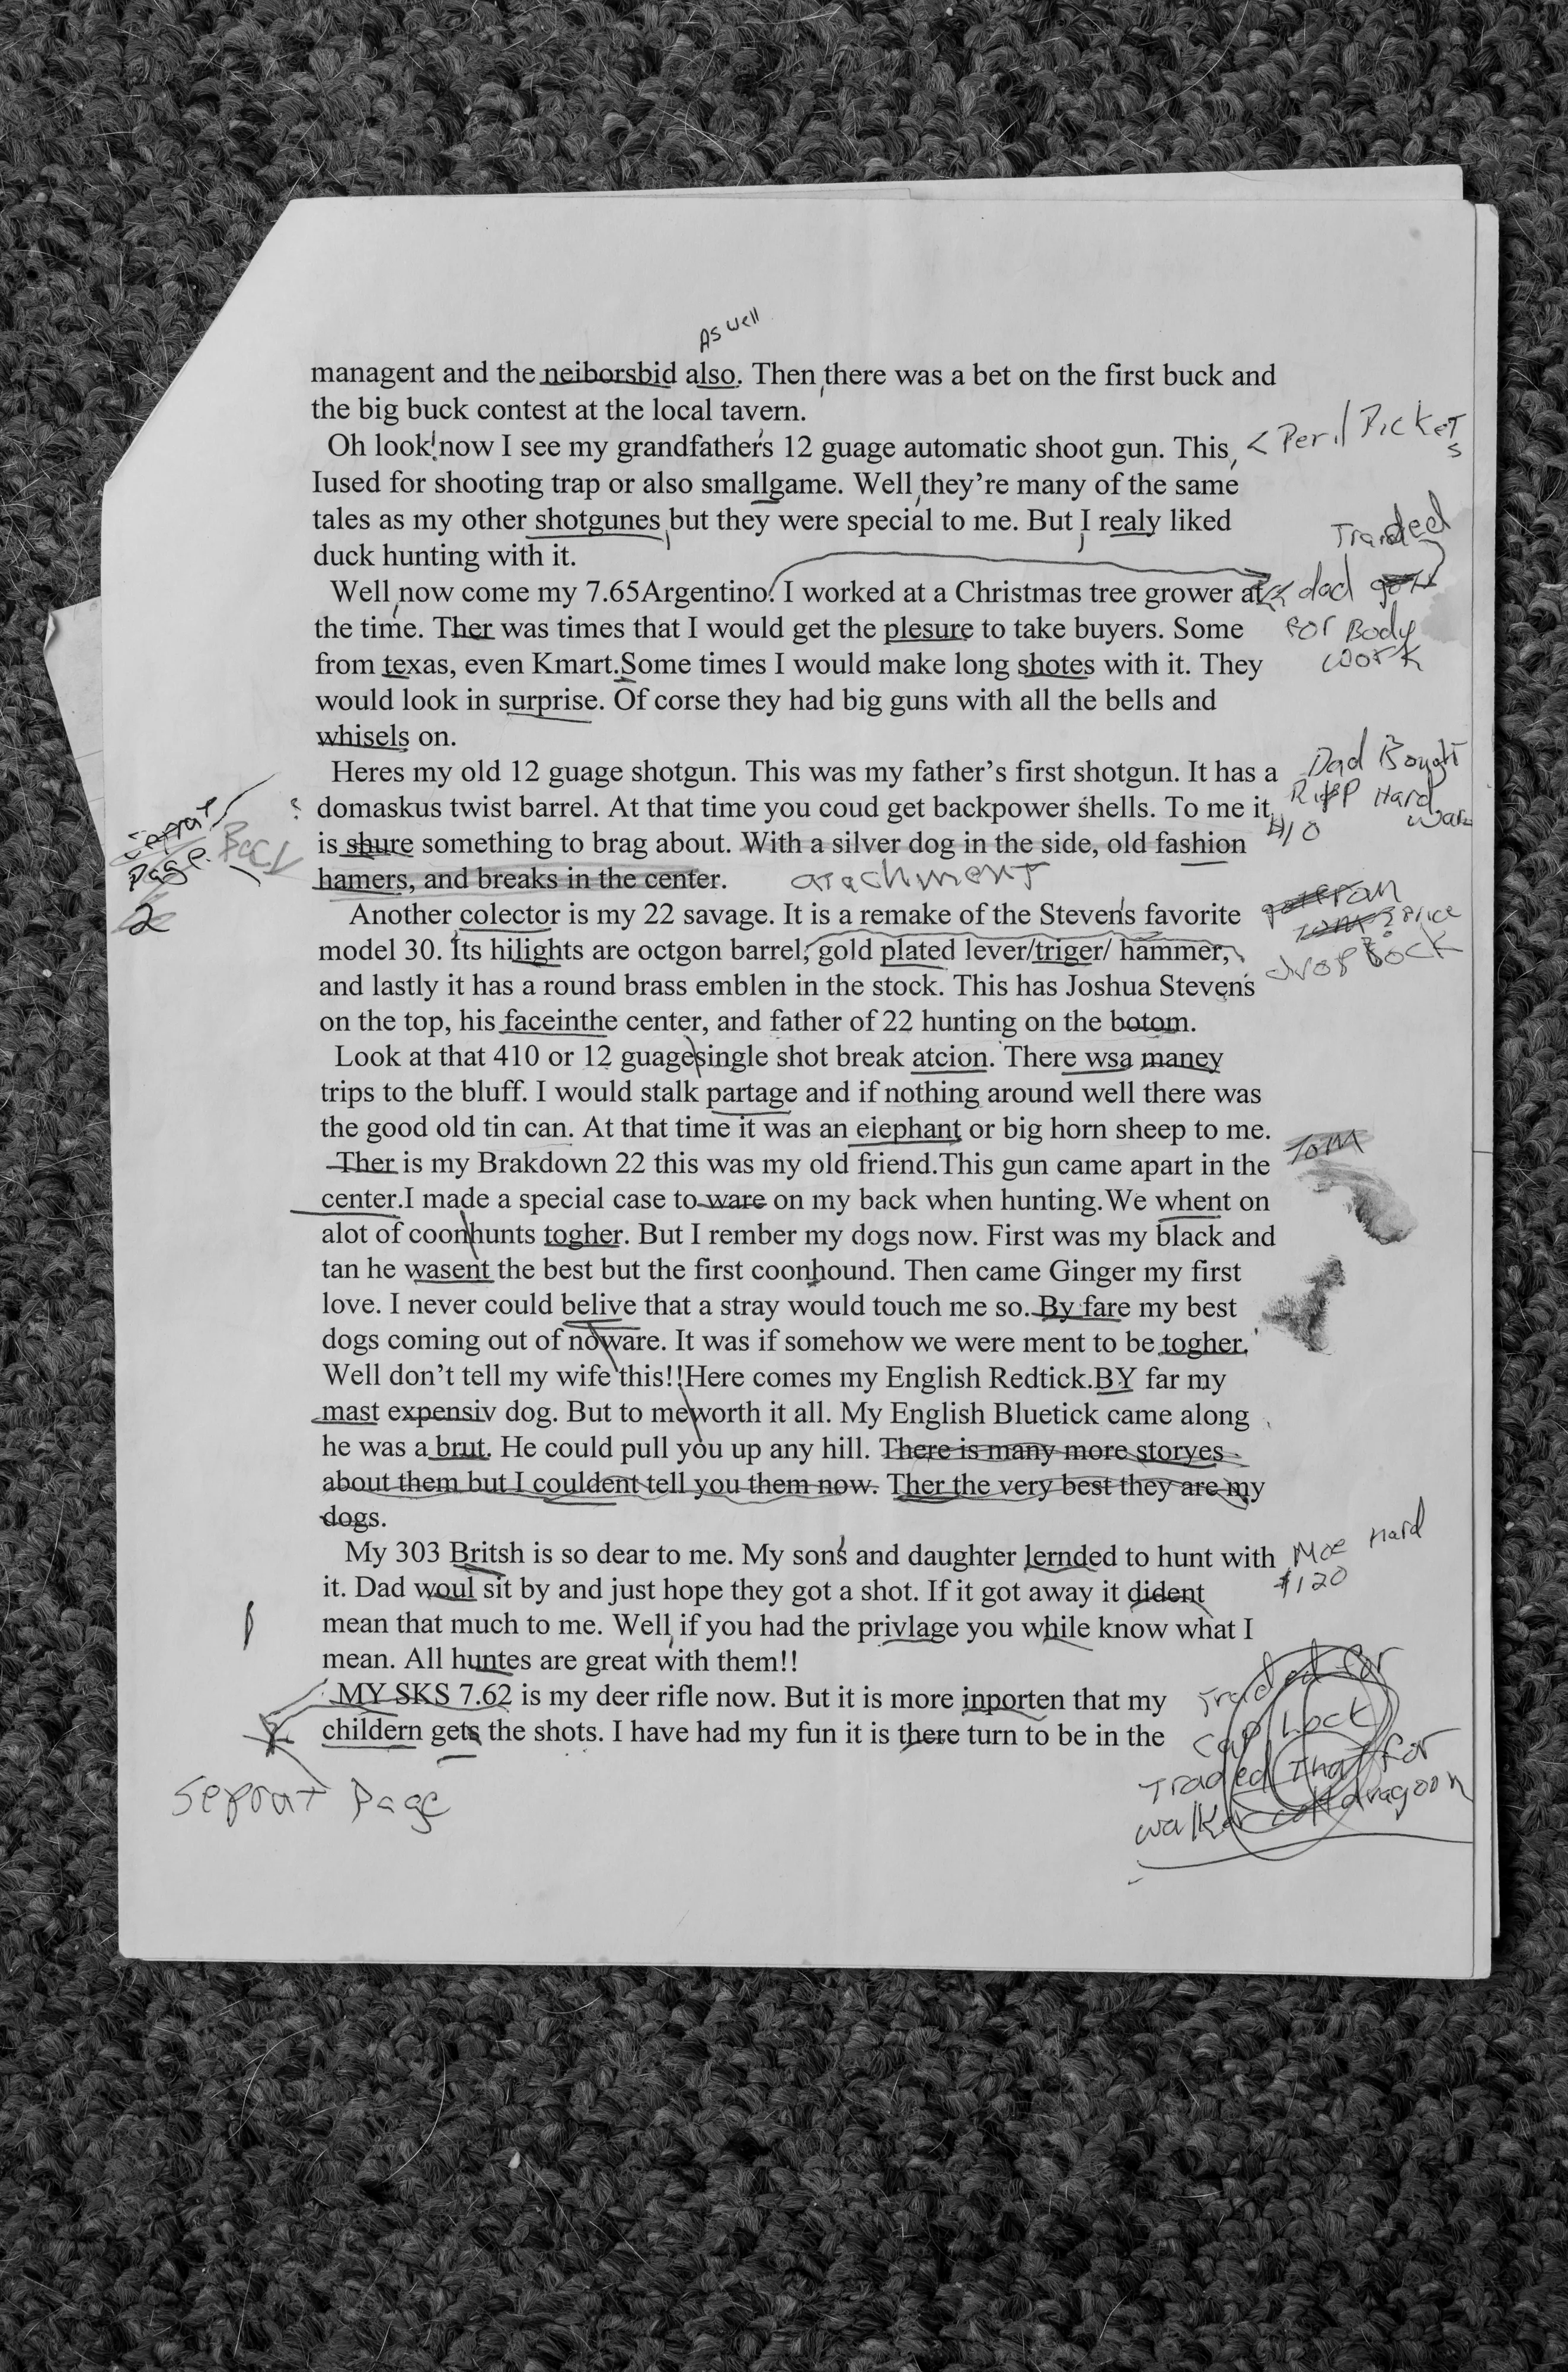 As well
managent and the neiborsbid also. Then, there was a bet on the first buck and
the big buck contest at the local tavern.
Oh look! now I see my grandfather's 12 guage automatic shoot gun. This,
< Peril Pickets
Iused for shooting trap or also smallgame. Well, they're many of the same
tales as my other shotgunes, but they were special to me. But, I realy liked
Traded
duck hunting with it.
Well, now come my 7.65Argentino. I worked at a Christmas tree grower at
dad
the time. Ther was times that I would get the plesure to take buyers. Some
For Body
work
from texas, even Kmart.Some times I would make long shotes with it. They
would look in surprise. Of corse they had big guns with all the bells and
whisels on.
Heres my old 12 guage shotgun. This was my father's first shotgun. It has a
Dad Bought
Hard
ware
$10
? domaskus twist barrel. At that time you coud get backpower shells. To me it,
Seprat
Page
Back
2
is shure something to brag about. With a silver dog in the side, old fashion
hamers, and breaks in the center.
atachment
Another colector is my 22 savage. It is a remake of the Steven's favorite
Price
model 30. Its hilights are octgon barrel, gold plated lever/triger/ hammer,
drop
and lastly it has a round brass emblen in the stock. This has Joshua Stevens
on the top, his faceinthe center, and father of 22 hunting on the botom.
Look at that 410 or 12 guagesingle shot break atcion. There wsa maney
trips to the bluff. I would stalk partage and if nothing around well there was
the good old tin can. At that time it was an eiephant or big horn sheep to me.
Tom
Ther is my Brakdown 22 this was my old friend.This gun came apart in the
center.I made a special case to ware on my back when hunting.We whent on
alot of coonhunts togher. But I rember my dogs now. First was my black and
tan he wasent the best but the first coonhound. Then came Ginger my first
love. I never could belive that a stray would touch me so. By fare my best
dogs coming out of noware. It was if somehow we were ment to be togher.
Well don't tell my wife this!!Here comes my English Redtick.BY far my
mast expensiv dog. But to meworth it all. My English Bluetick came along
he was a brut. He could pull you up any hill. There is many more storyes
about them but I couldent tell you them now. Ther the very best they are my
dogs.
My 303 Britsh is so dear to me. My son's and daughter lernded to hunt with
Moe Hard
$120
it. Dad woul sit by and just hope they got a shot. If it got away it dident
mean that much to me. Well, if you had the privlage you while know what I
mean. All huntes are great with them!!
MY SKS 7.62 is my deer rifle now. But it is more inporten that my
childern gets the shots. I have had my fun it is there turn to be in the
Traded for
Cap Lock
Traded That for
walker colt dragoon
Seprat Page